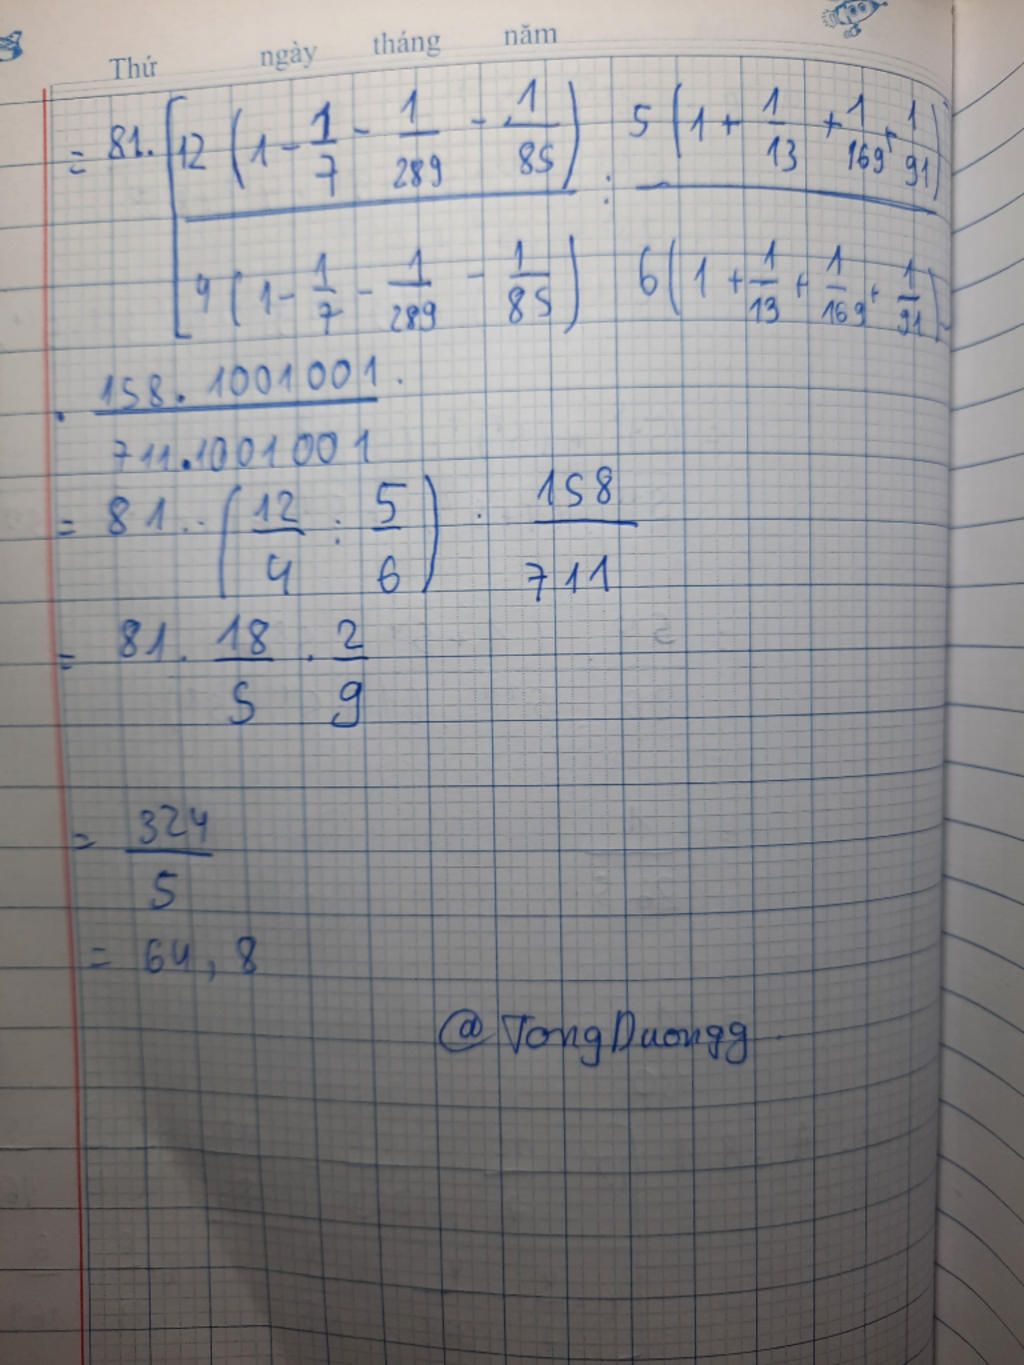 Thứ ngày tháng năm
= 81. [ 12 ( 1 - 1/7 - 1/289 - 1/85 ) / 4 ( 1 - 1/7 - 1/289 - 1/85 ) : 5 ( 1 + 1/13 + 1/169 + 1/91 ) / 6 ( 1 + 1/13 + 1/169 + 1/91 ) ]
. 158.1001001 / 711.1001001
= 81. ( 12/4 : 5/6 ) . 158/711
= 81. 18/5 . 2/9
= 324/5
= 64,8
@TongDuongg